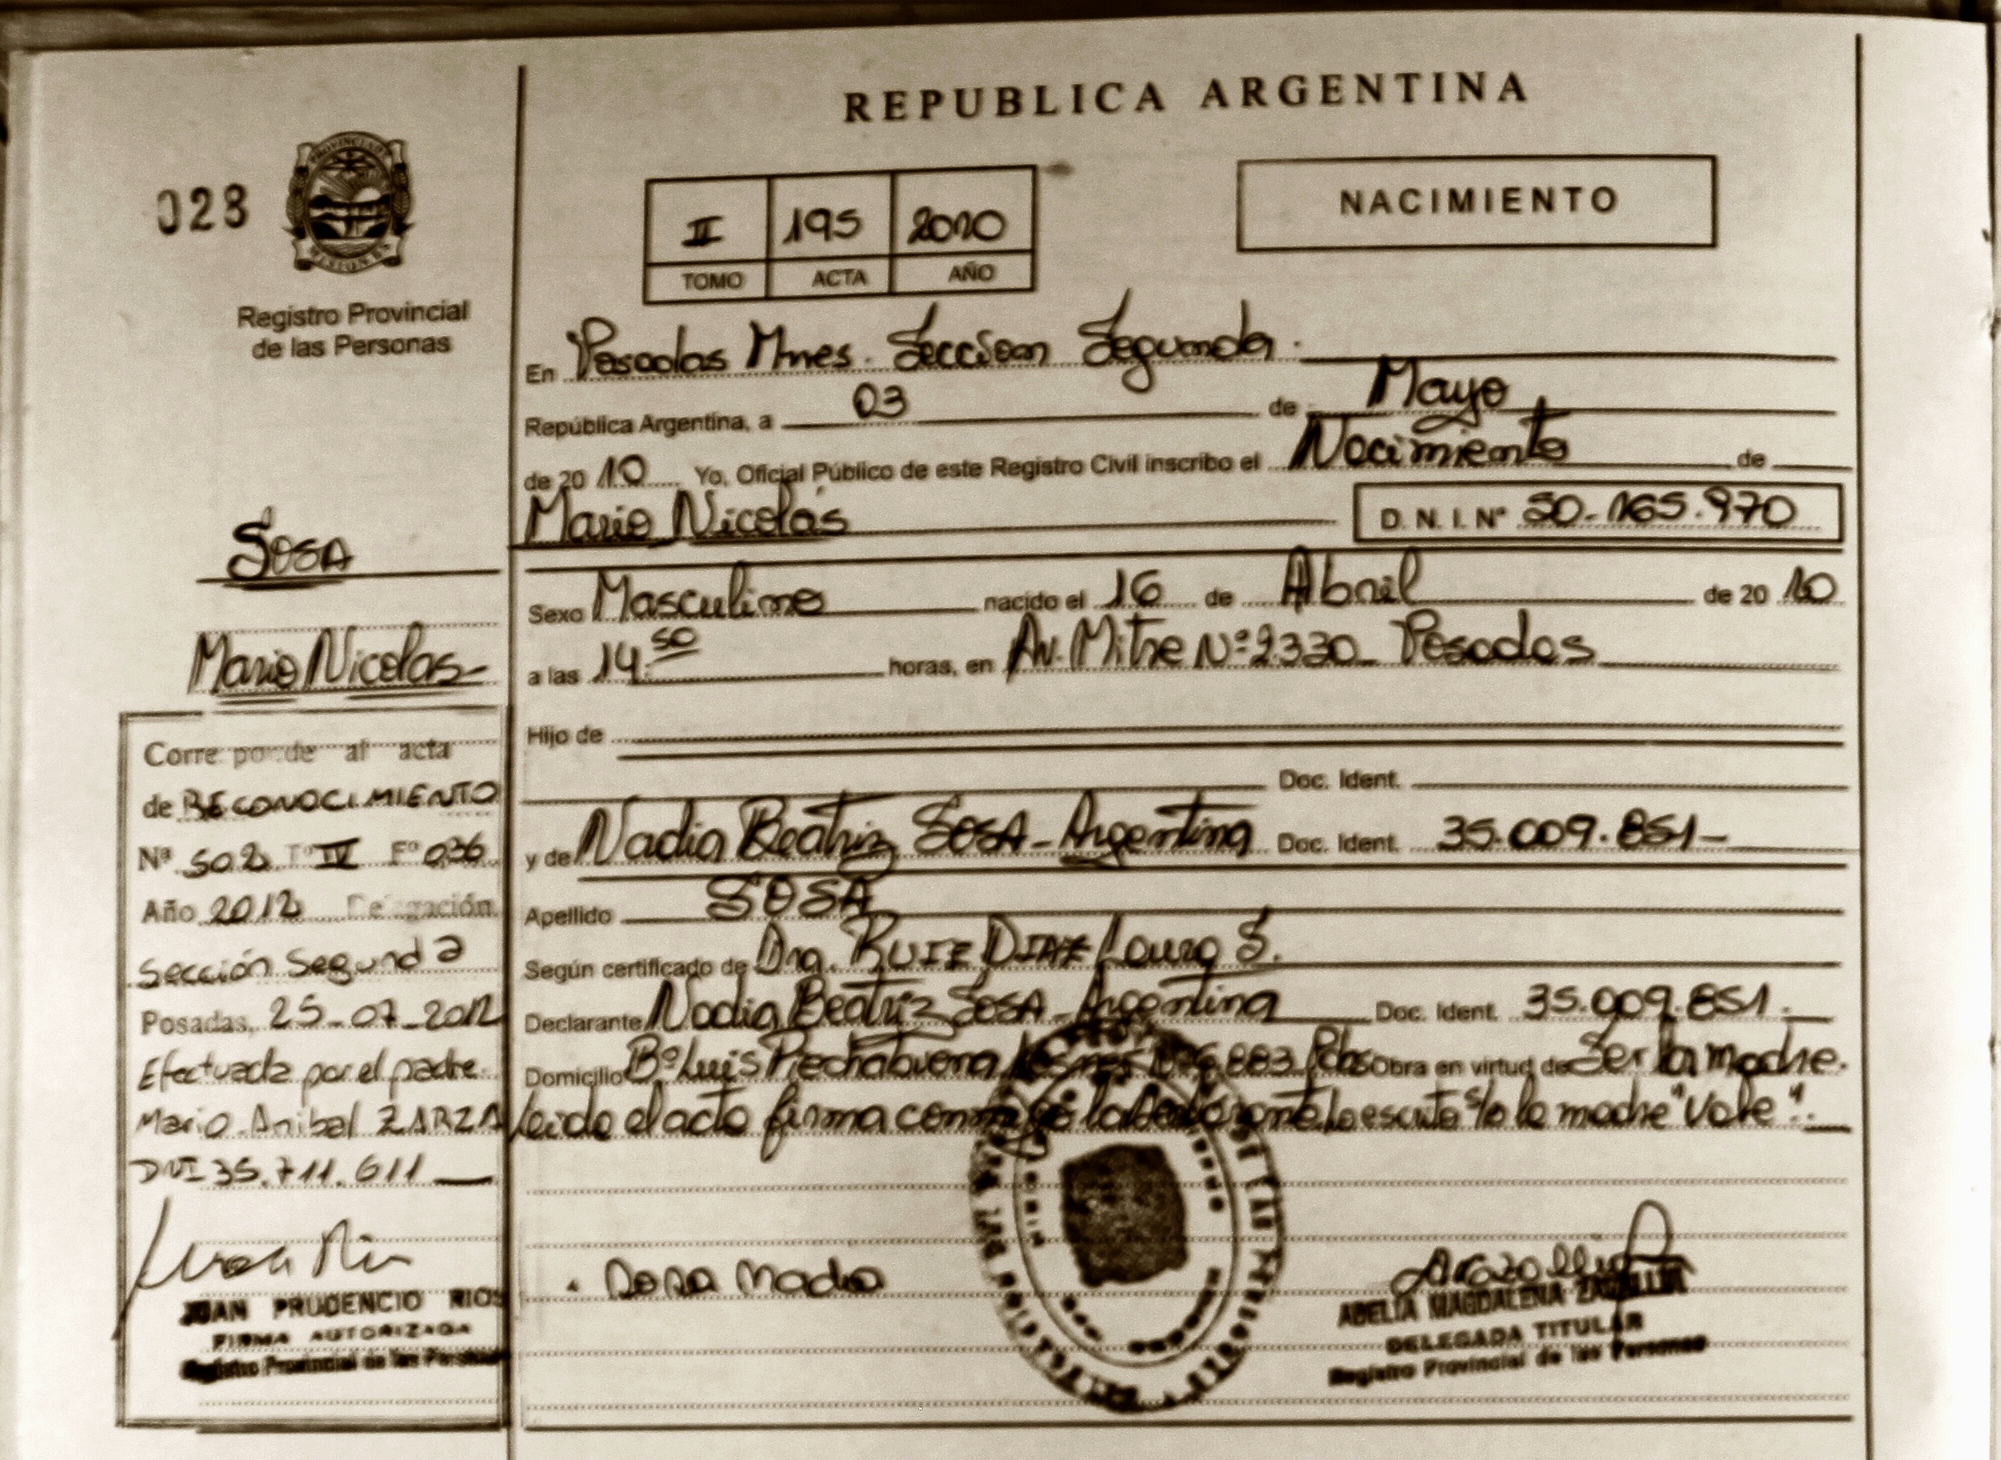 REPUBLICA ARGENTINA
028
NACIMIENTO
II 195 2010
TOMO ACTA AÑO
Registro Provincial
de las Personas
En Posadas Mnes. Seccion Segunda.
República Argentina, a 03 de Mayo
de 2010 Yo, Oficial Público de este Registro Civil inscribo el Nacimiento de
Mario Nicolás D. N. I. Nº 50.165.970
SOSA
Mario Nicolas
Sexo Masculino nacido el 16 de Abril de 2010
a las 14.50 horas, en Av. Mitre Nº 2330 Posadas
Hijo de
Doc. Ident.
y de Nadia Beatriz SOSA - Argentina Doc. Ident. 35.009.851-
Apellido SOSA
Según certificado de Dra. RUIZ DIAZ Laura S.
Declarante Nadia Beatriz SOSA - Argentina Doc. Ident. 35.009.851.
Domicilio Bº Luis Piedrabuena 883 Pdas Obra en virtud de Ser la madre.
Leida el acta firma conmigo la
escrito s/o la madre "Vale".
Corresponde al acta
de RECONOCIMIENTO
Nº 502 Tº IV Fº 036
Año 2012 Delegación
Sección Segunda
Posadas, 25-07-2012
Efectuada por el padre
Mario Anibal ZARZA
DNI 35.711.611
JUAN PRUDENCIO RIOS
FIRMA AUTORIZADA
Registro Provincial de las Personas
Sosa Nadia
ABELIA MAGDALENA
DELEGADA TITULAR
Registro Provincial de las Personas